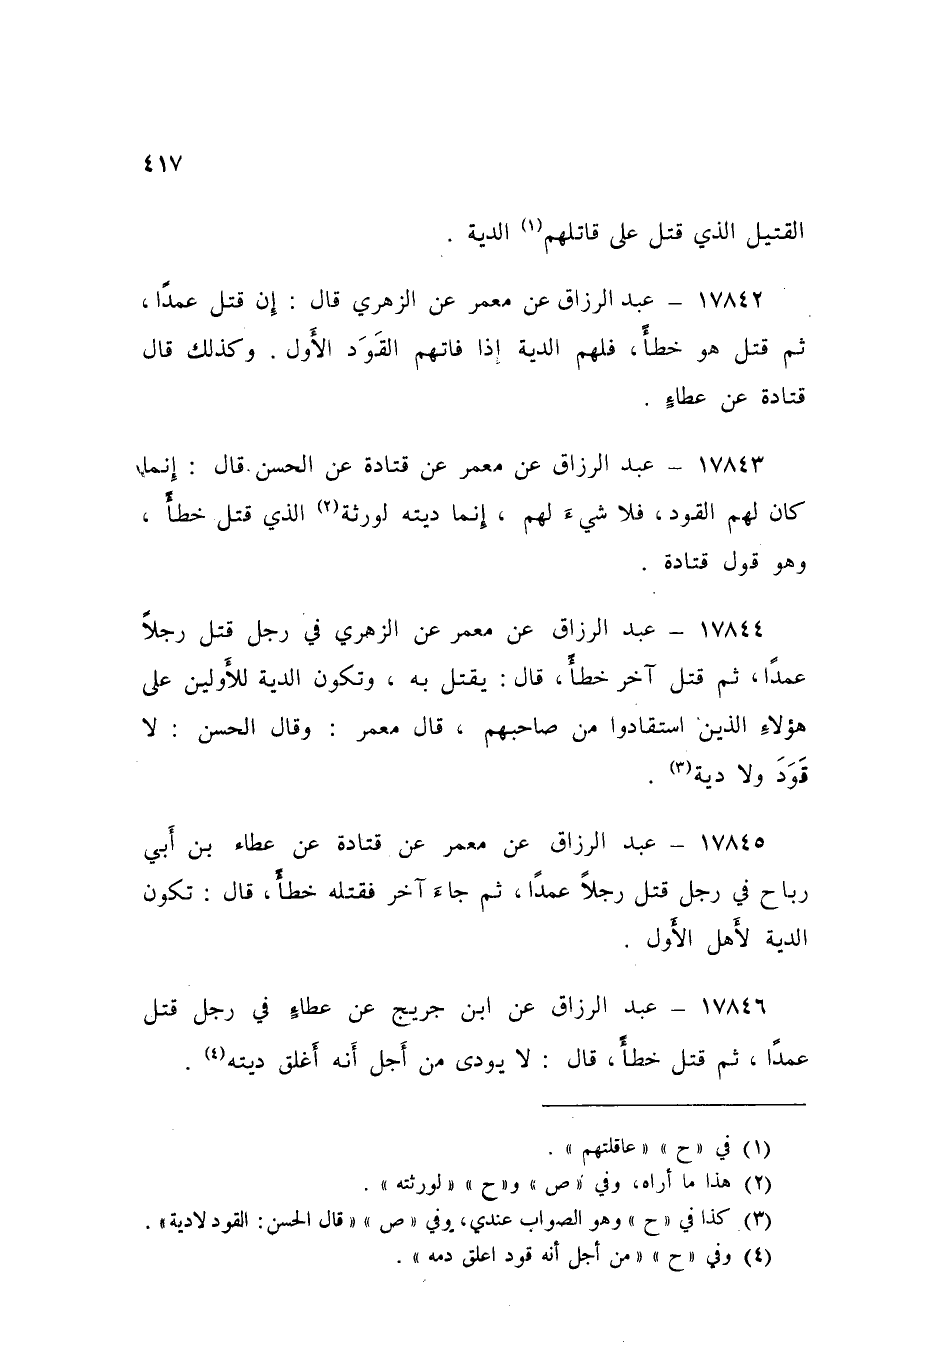 ٤١٧
القتيل الذي قتل على قاتلهم(١) الدية .
١٧٨٤٢ – عبد الرزاق عن معمر عن الزهري قال : إن قتل عمدًا ،
ثم قتل هو خطأً ، فلهم الدية إذا فاتهم القَوَد الأَول . وكذلك قال
قتادة عن عطاءٍ .
١٧٨٤٣ – عبد الرزاق عن معمر عن قتادة عن الحسن قال : إنما
كان لهم القود ، فلا شيءَ لهم ، إنما ديته لورثة(٢) الذي قتل خطأً ،
وهو قول قتادة .
١٧٨٤٤ – عبد الرزاق عن معمر عن الزهري في رجل قتل رجلاً
عمدًا ، ثم قتل آخر خطأً ، قال : يقتل به ، وتكون الدية للأَولين على
هؤلاءِ الذين استقادوا من صاحبهم ، قال معمر : وقال الحسن : لا
قَوَدَ ولا دية(٣) .
١٧٨٤٥ – عبد الرزاق عن معمر عن قتادة عن عطاء بن أَبي
رباح في رجل قتل رجلاً عمدًا ، ثم جاءَ آخر فقتله خطأً ، قال : تكون
الدية لأَهل الأَول .
١٧٨٤٦ – عبد الرزاق عن ابن جريج عن عطاءٍ في رجل قتل
عمدًا ، ثم قتل خطأً ، قال : لا يودى من أَجل أَنه أَغلق ديته(٤) .
(١) في « ح » « عاقلتهم » .
(٢) هذا ما أراه، وفي « ص » و« ح » « لورثته » .
(٣) كذا في « ح » وهو الصواب عندي، وفي « ص » « قال الحسن : القود لادية» .
(٤) وفي « ح » « من أجل أنه قود اعلق دمه » .